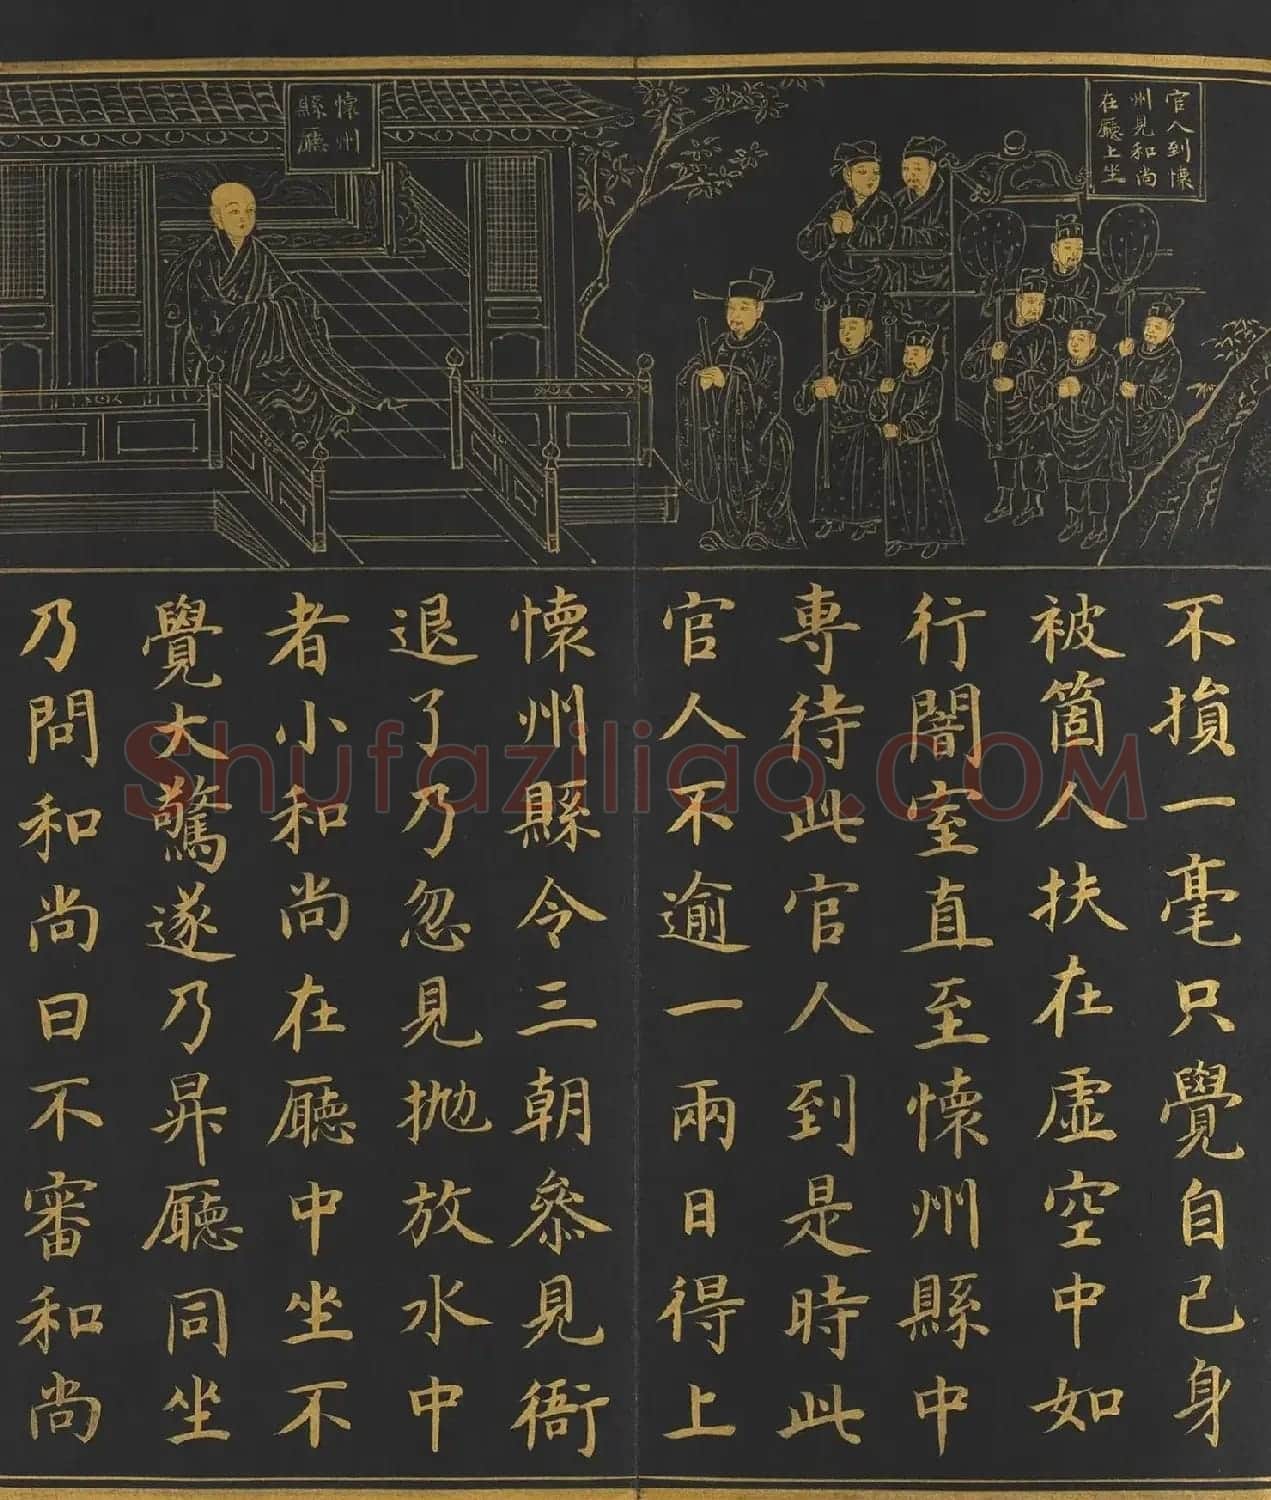 官人到懷
州見和尚
在廳上坐
懷州
縣廳
不損一毫只覺自己身
被箇人扶在虛空中如
行闇室直至懷州縣中
專待此官人到是時此
官人不逾一兩日得上
懷州縣令三朝叅見衙
退了乃忽見拋放水中
者小和尚在廳中坐不
覺大驚遂乃昇廳同坐
乃問和尚曰不審和尚
Shufaziliao.COM